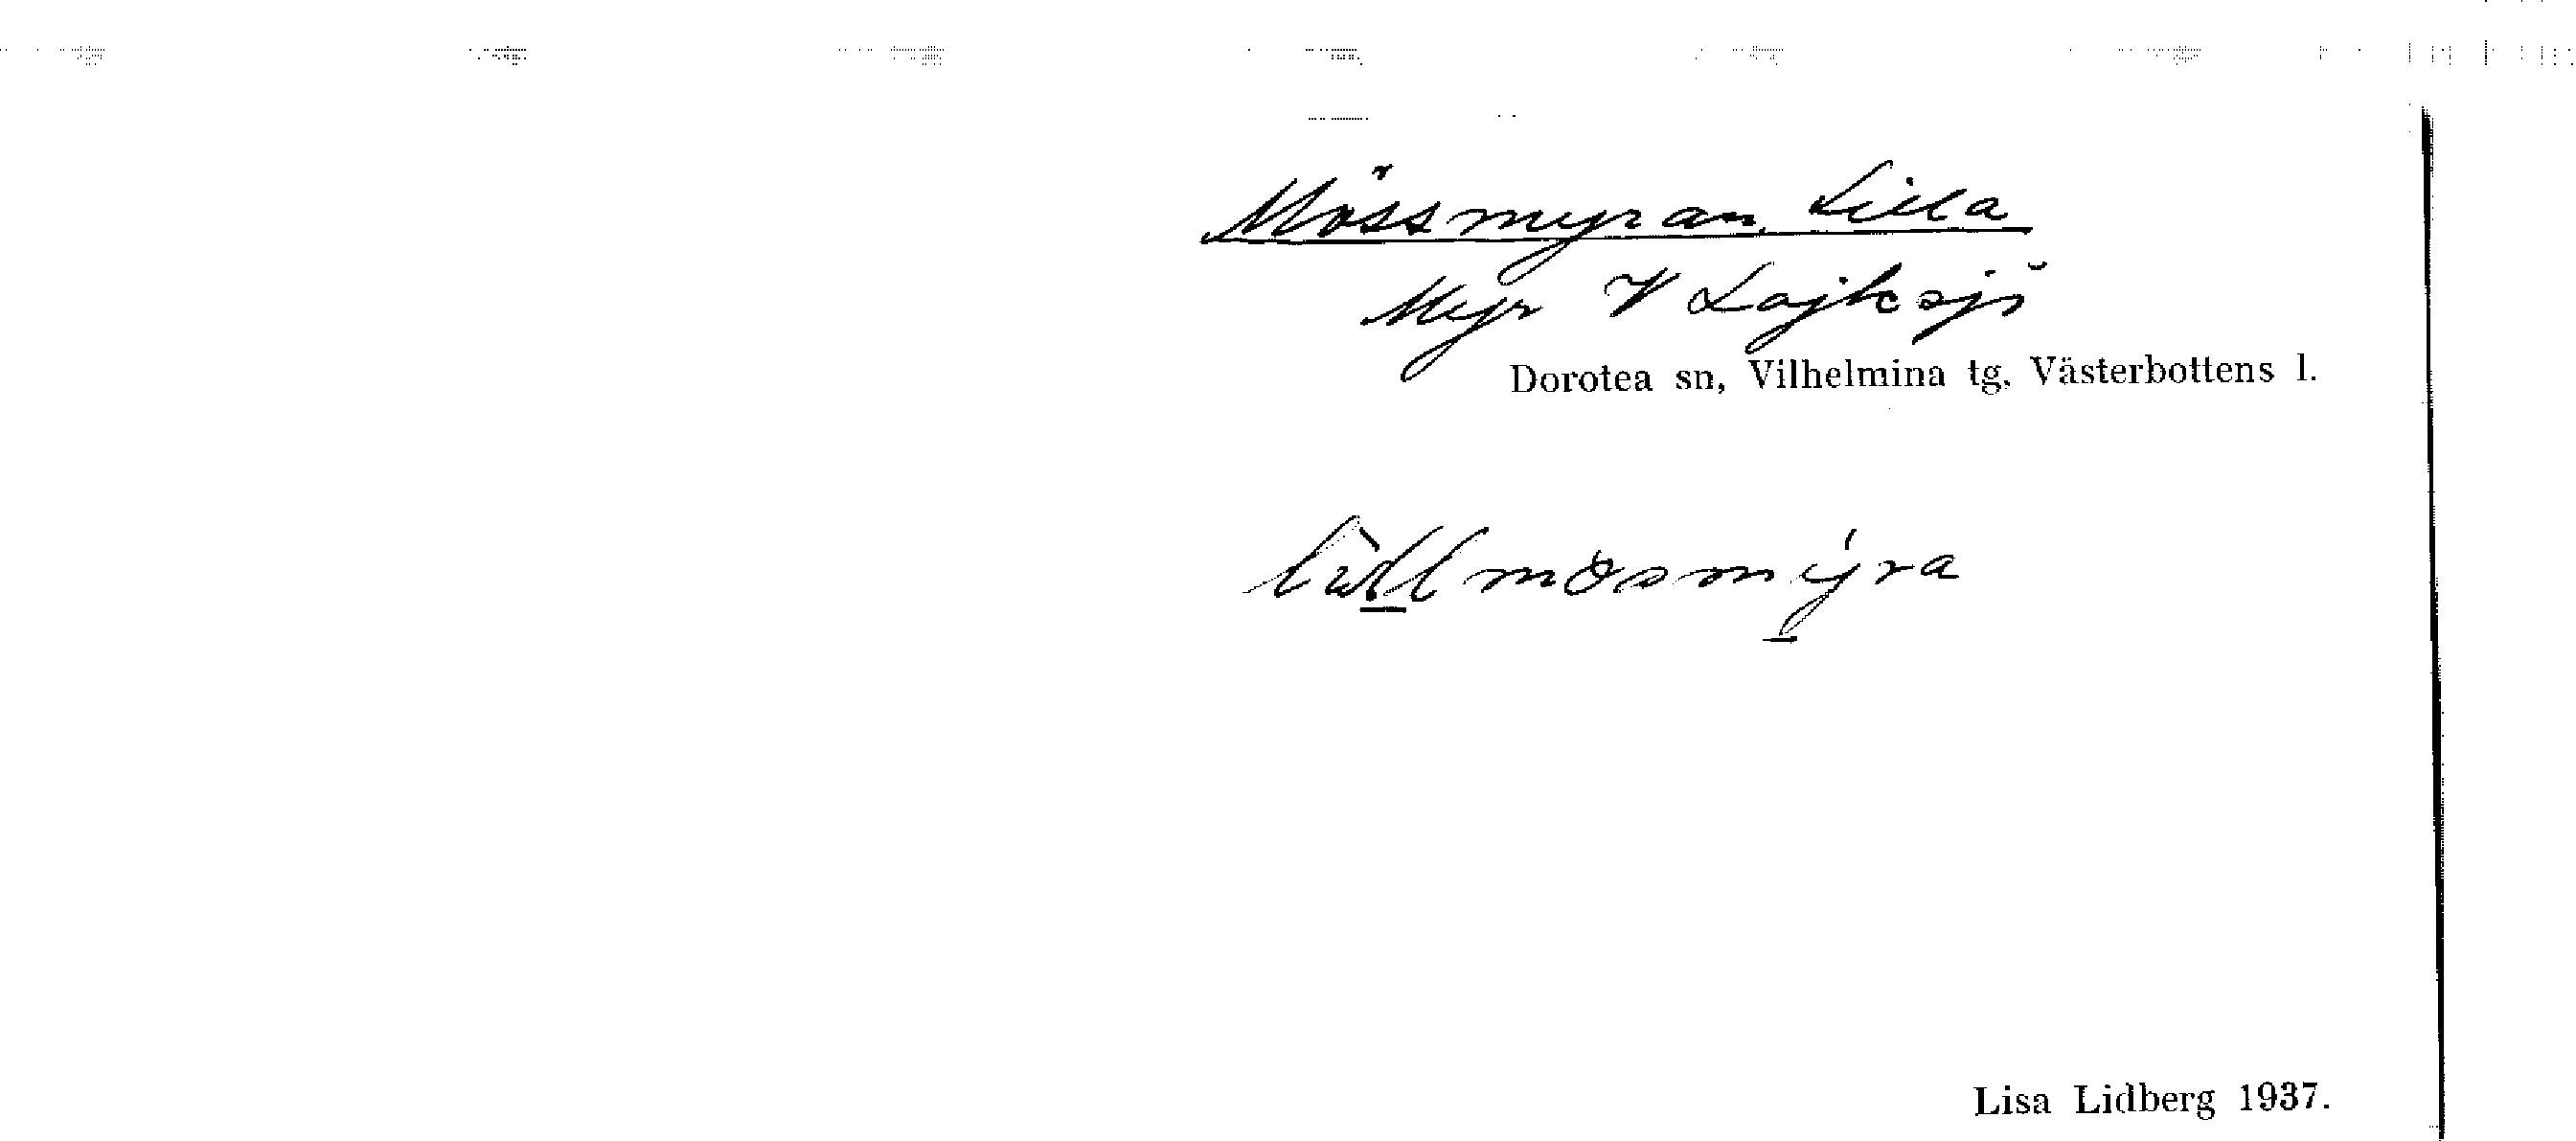 Mössmyran, Lilla
Myr V Lajksjö
Dorotea sn, Vilhelmina tg, Västerbottens l.
mosmýra
Lisa Lidberg 1937.